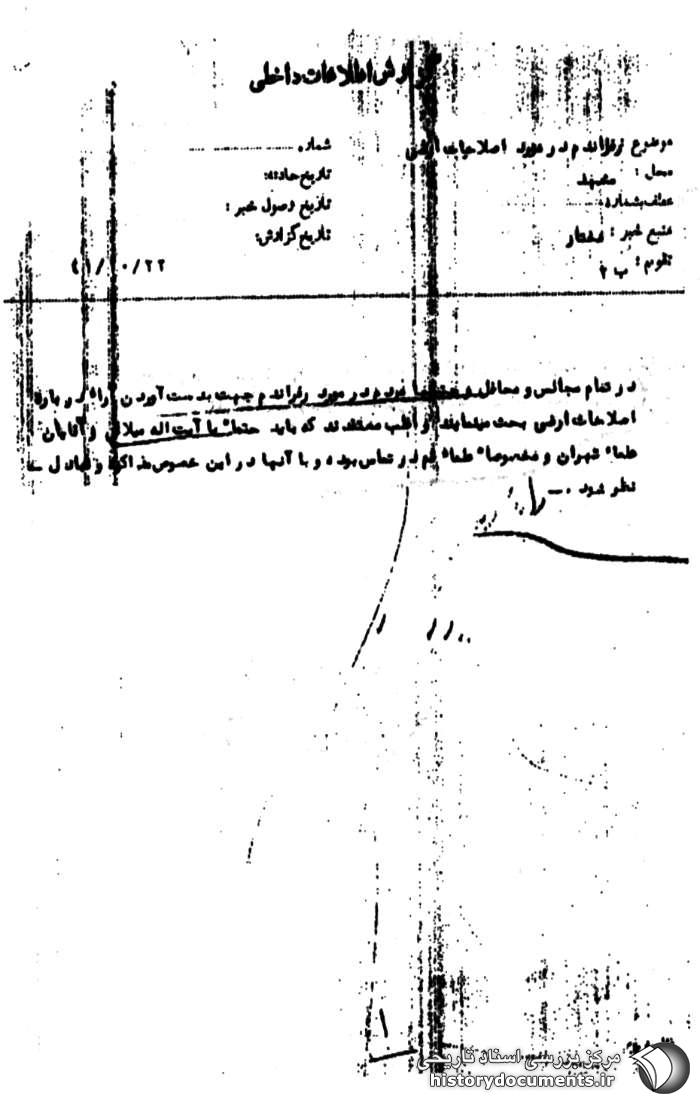 گزارش اطلاعات داخلی
موضوع رفراندم در مورد اصلاحات ارضی
شماره
محل : مشهد
تاریخ حادثه:
عطف بشماره
تاریخ وصول خبر :
منبع خبر :
تاریخ گزارش:
تقویم : ب ۲
در تمام مجالس و محافل مردم در مورد رفراندم جهت بدست آوردن آراء در باره
اصلاحات ارضی بحث مینمایند و اغلب معتقدند که باید حتماً با آیت اله میلانی و آقایان
علماء تهران و مخصوصاً علماء قم در تماس بوده و با آنها در این خصوص مذاکره و تبادل
نظر شود .ـ
مرکز بررسی اسناد تاریخی
historydocuments.ir